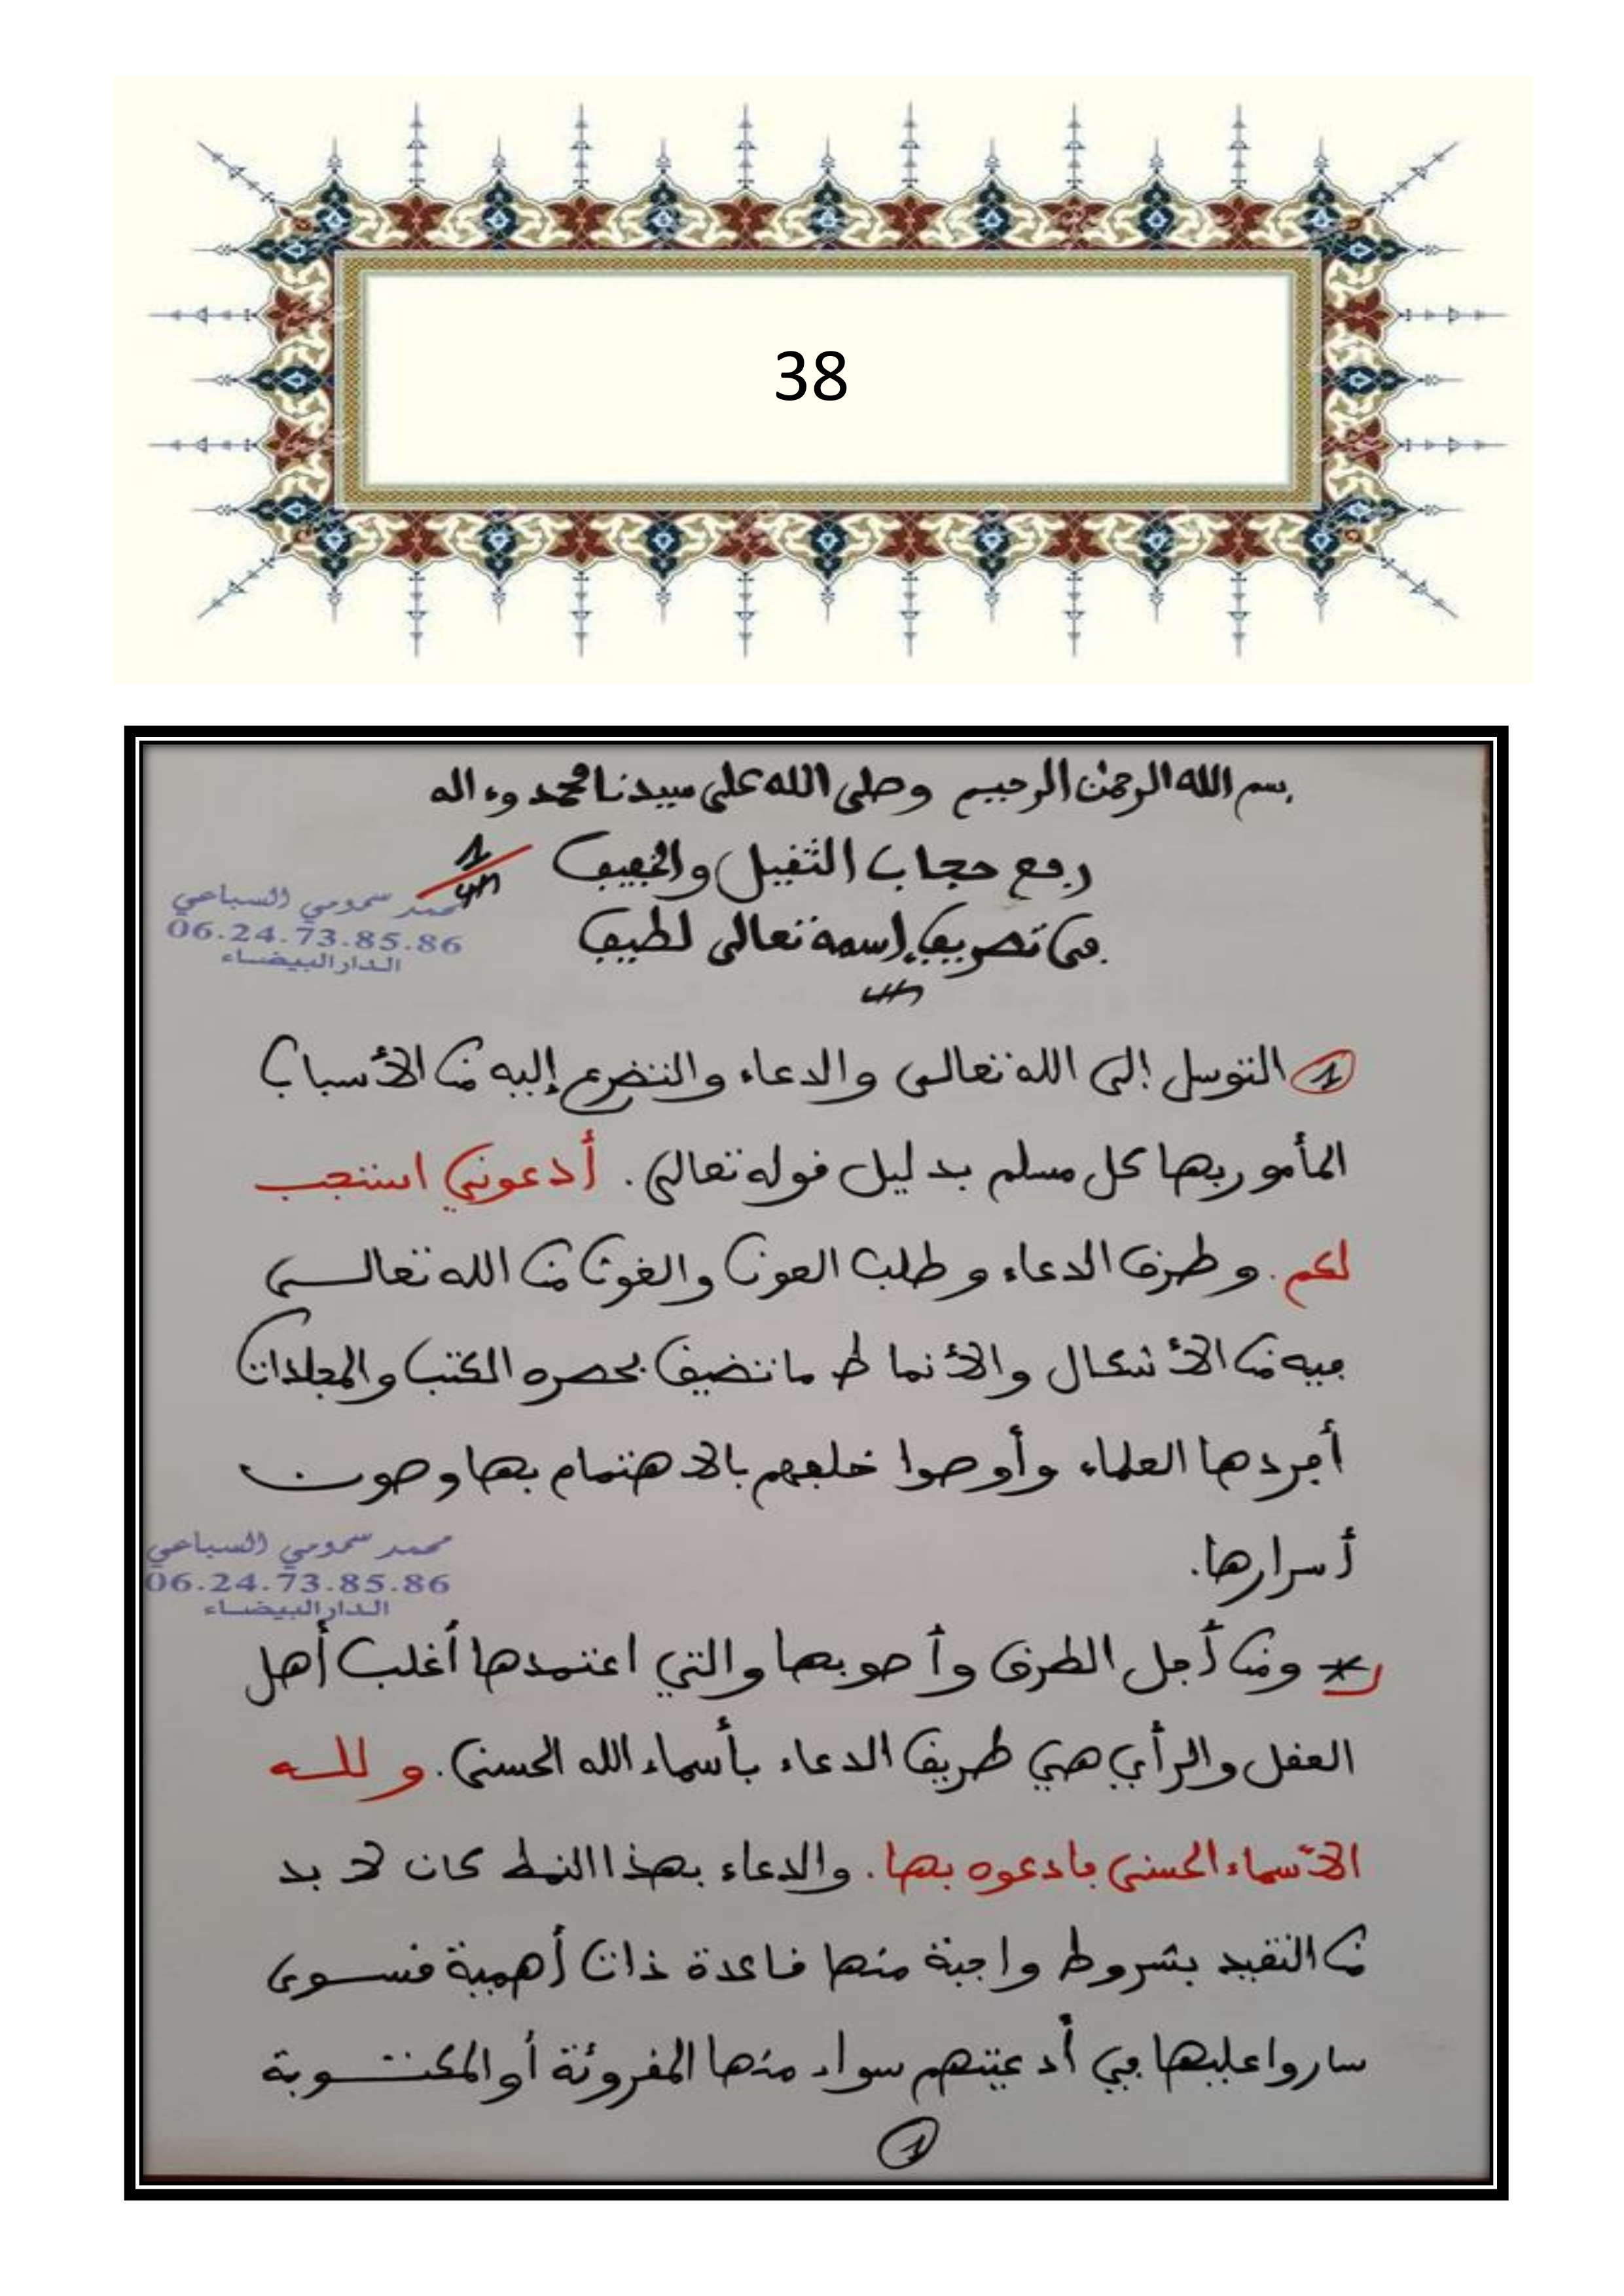 38
بسم الله الرحمن الرحيم وصلى الله على سيدنا محمد وءاله
رفع حجاب الثقيل والخفيف
1
محمد سمومي السباعي
06.24.73.85.86
الدار البيضاء
في تصريف إسمه تعالى لطيف
1 التوسل إلى الله تعالى والدعاء والتضرع إليه من الأسباب
المأمور بها كل مسلم بدليل قوله تعالى. أدعوني استجب
لكم. وطرق الدعاء وطلب العون والغوث من الله تعالى
فيه من الأشكال والأنماط ما تضيق بحصره الكتب والمجلدات
أفردها العلماء وأوصوا خلفهم بالاهتمام بها وصون
أسرارها.
محمد سمومي السباعي
06.24.73.85.86
الدار البيضاء
* ومن أجل الطرق وأصوبها والتي اعتمدها أغلب أهل
العقل والرأي هي طريق الدعاء بأسماء الله الحسنى. ولله
الأسماء الحسنى فادعوه بها. والدعاء بهذا النمط كان لا بد
من التقيد بشروط واجبة منها قاعدة ذات أهمية قسوى
ساروا عليها في أدعيتهم سواء منها المقروئة أو المكتوبة
1